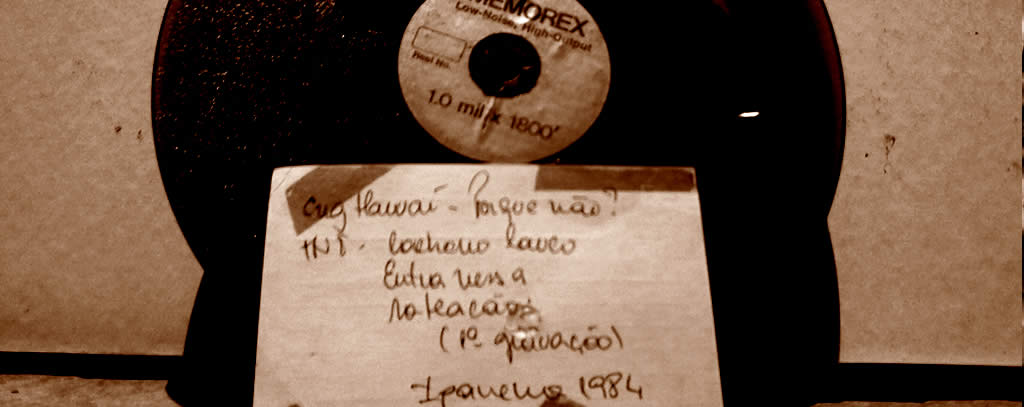 MEMOREX
Low-Noise, High-Output
Reel No.
1.0 mil x 1800'
Eng Hawaí - Porque não?
INT - Cachorro Louco
Entra nessa
(1ª gravação)
Ipanema 1984